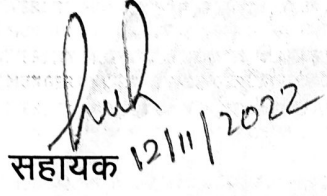 सहायक 12/11/2022